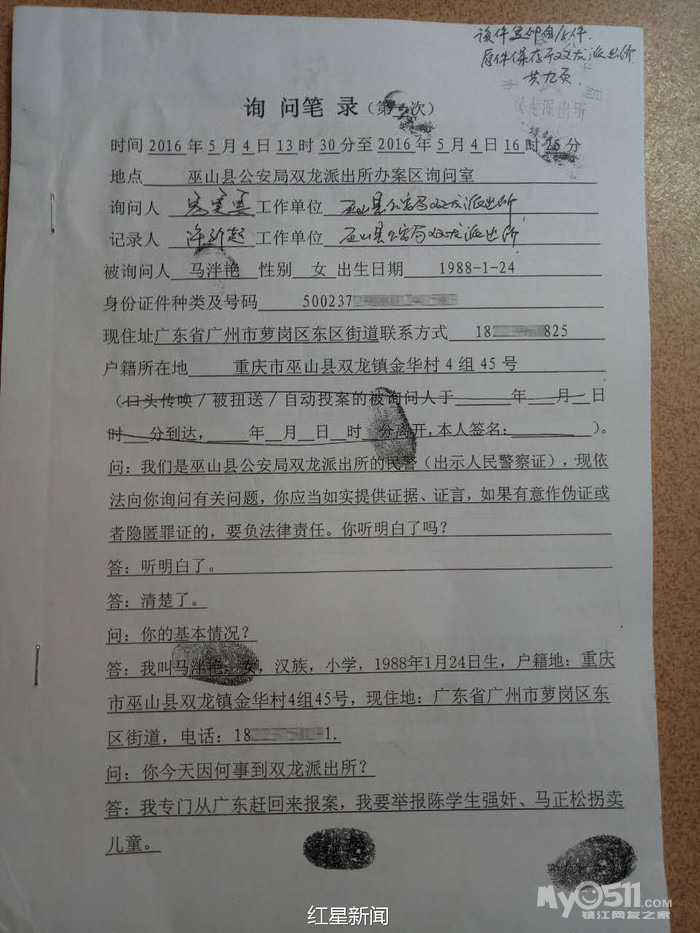 该件复印自原件
原件保存于双龙派出所
共九页
双龙派出所
询 问 笔 录（第 次）
时间 2016 年 5 月 4 日 13 时 30 分至 2016 年 5 月 4 日 16 时 分
地点 巫山县公安局双龙派出所办案区询问室
询问人 工作单位 巫山县公安局双龙派出所
记录人 工作单位 巫山县公安局双龙派出所
被询问人 马泮艳 性别 女 出生日期 1988-1-24
身份证件种类及号码 500237
现住址广东省广州市萝岗区东区街道联系方式 18 825
户籍所在地 重庆市巫山县双龙镇金华村 4 组 45 号
（口头传唤／被扭送／自动投案的被询问人于 年 月 日
时 分到达， 年 月 日 时 分离开，本人签名： ）。
问：我们是巫山县公安局双龙派出所的民警（出示人民警察证），现依
法向你询问有关问题，你应当如实提供证据、证言，如果有意作伪证或
者隐匿罪证的，要负法律责任。你听明白了吗？
答：听明白了。
答：清楚了。
问：你的基本情况？
答：我叫马泮艳，女，汉族，小学，1988年1月24日生，户籍地：重庆
市巫山县双龙镇金华村4组45号，现住地：广东省广州市萝岗区东
区街道，电话：18 1.
问：你今天因何事到双龙派出所？
答：我专门从广东赶回来报案，我要举报陈学生强奸、马正松拐卖
儿童。
红星新闻
My0511.com
镇江网友之家